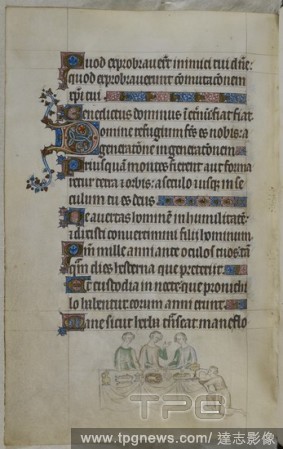 Quod exprobraverunt inimici tui d̄ne:
quod exprobraverunt cōmutac̄onem
xp̄i tui
Benedictus dominus ī et̄nū fiat fiat
Domine refugium fc̄s es nobis: a
generatōne in generac̄onem
Priusquam montes fierent aut forma
retur terra ⁊ orbis: a seculo ⁊ usq̨ in se
culum tu es deus
Ne avertas hominē in humilitatē:
⁊ dixisti convertimini filii hominum
Qm̄ mille anni ante oculos tuos tāq̄
qm̄ dies hesterna que preteriit
Et custodia in nocte: que pro nichi
lo habentur eorum anni erunt
Mane sicut herba trāseat mane flo
TPG
www.tpgnews.com/ 達志影像